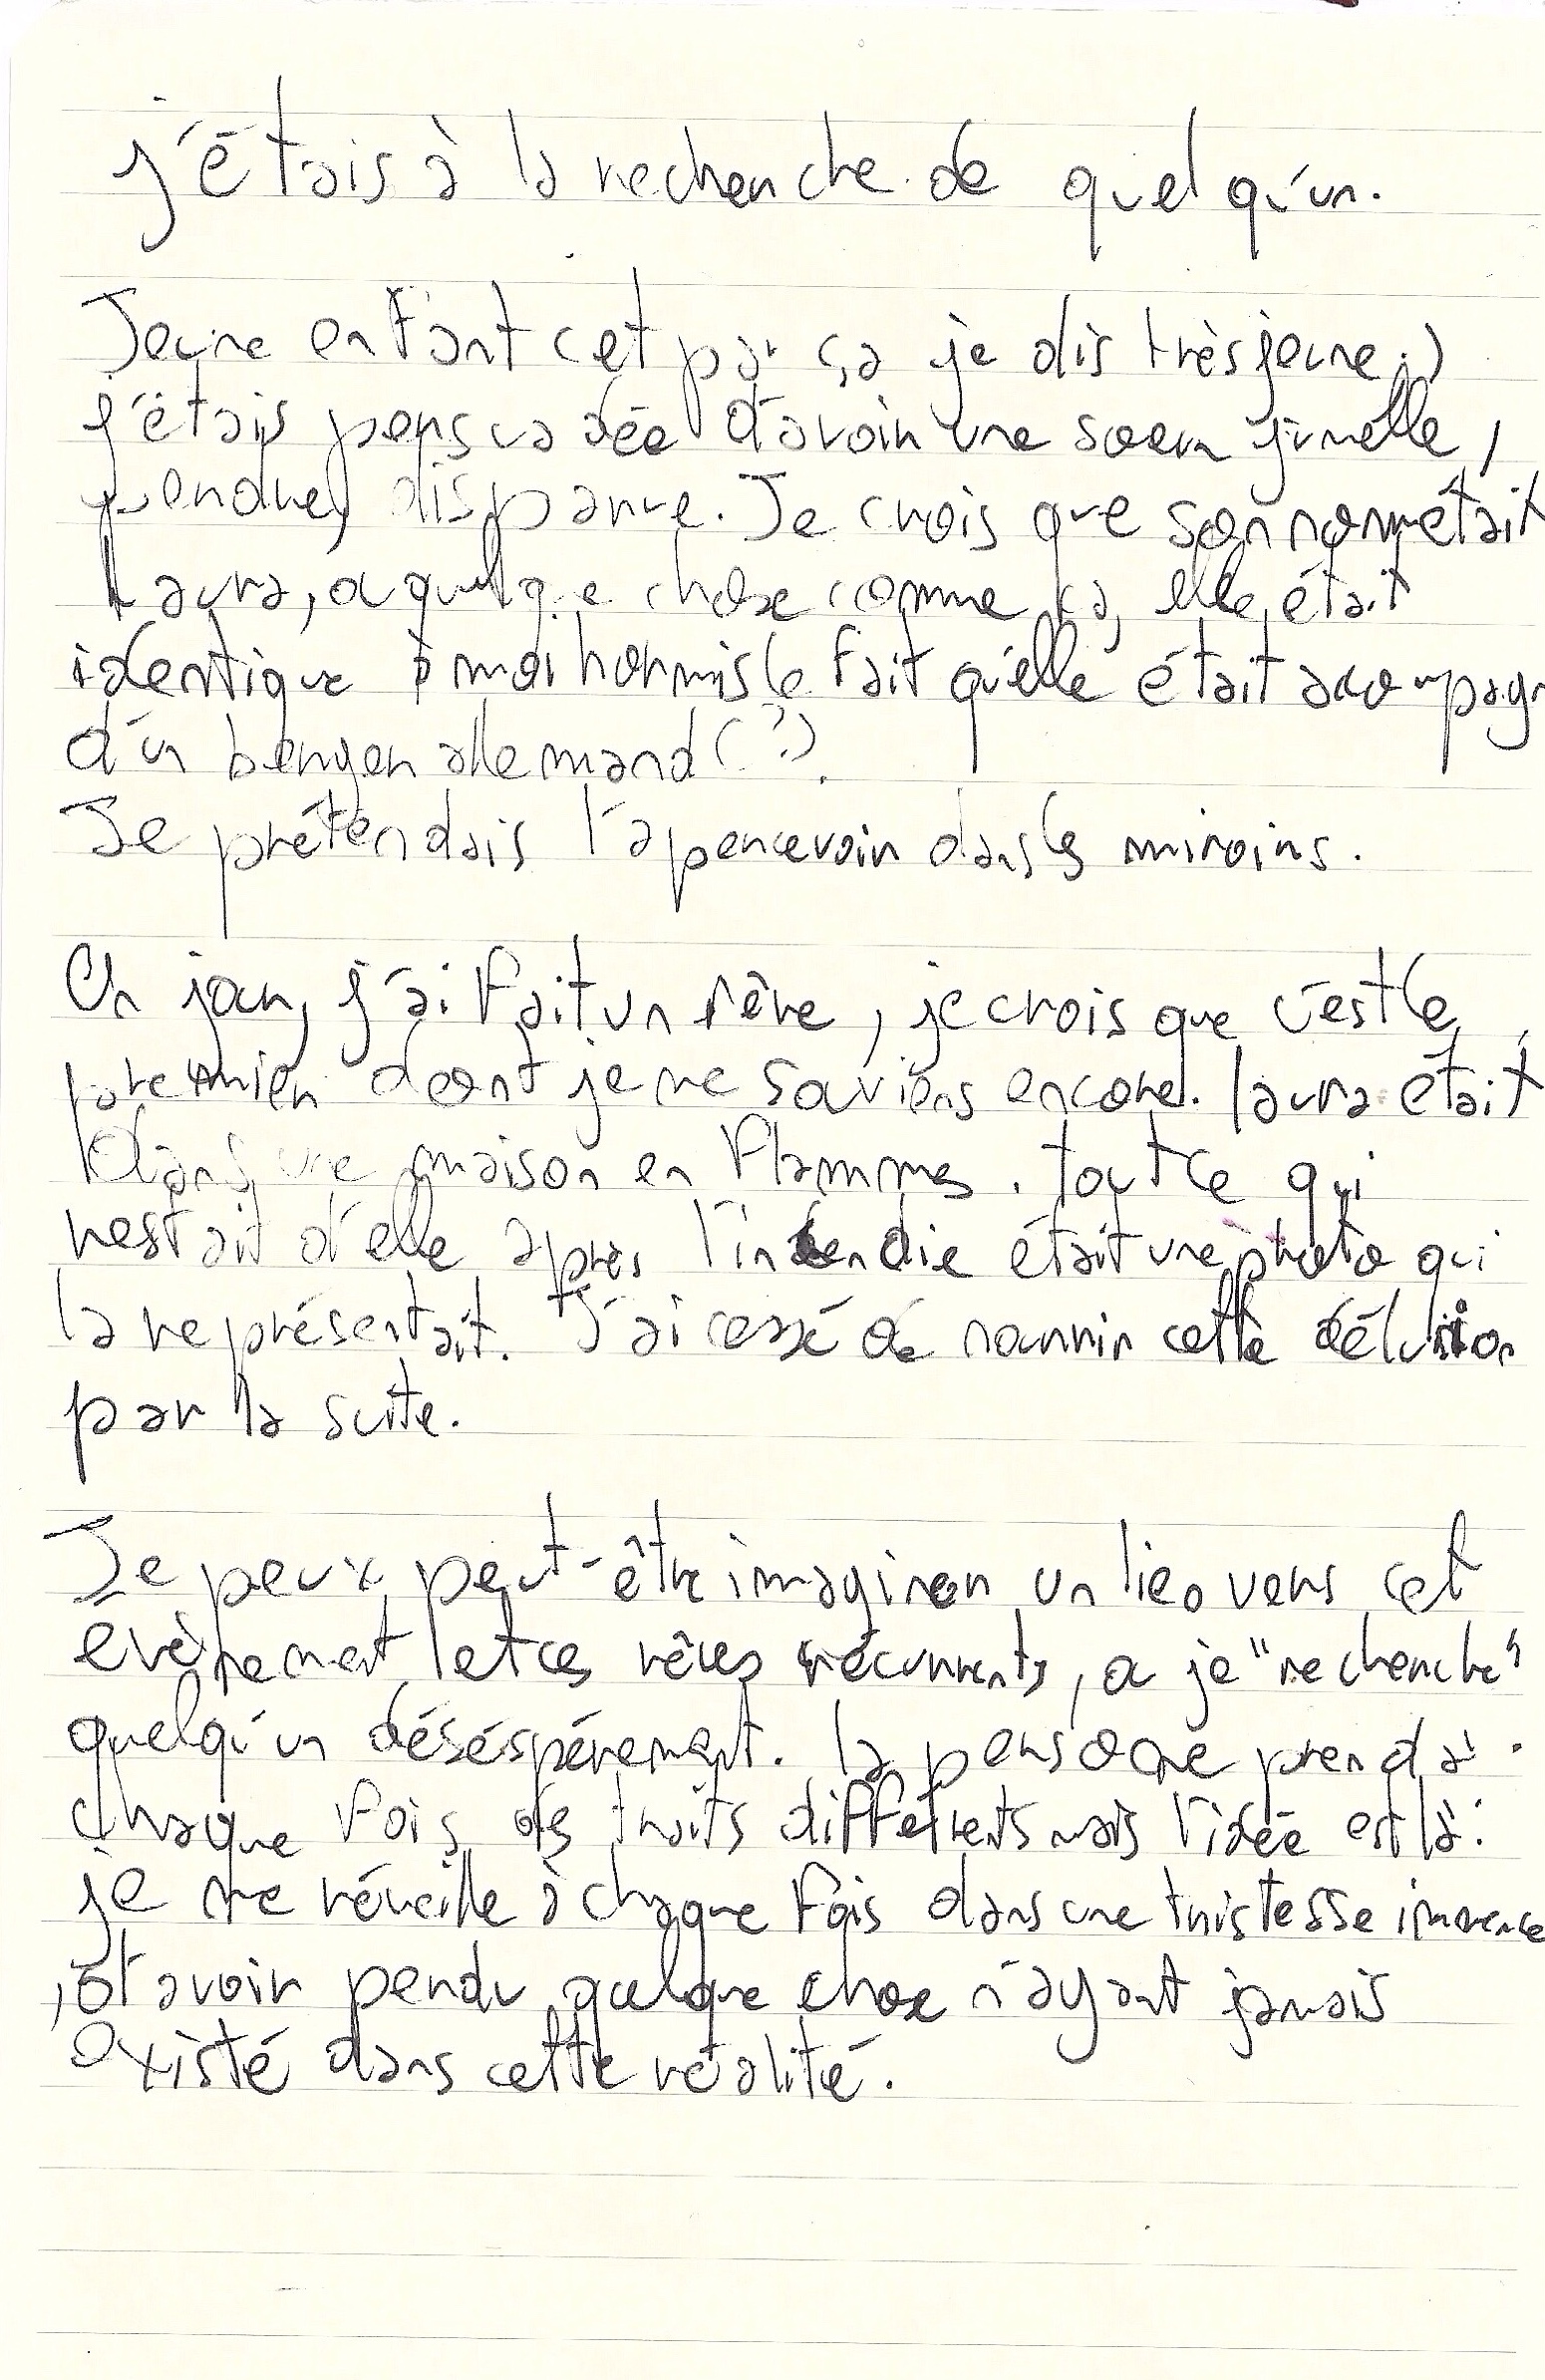 j'étais à la recherche de quelqu'un.
Jeune enfant (et par ça je dis très jeune.)
j'étais persuadée d'avoir une soeur jumelle,
perdue, disparue. Je crois que son nom était
Laura, ou quelque chose comme ça, elle était
identique à moi hormis le fait qu'elle était acompagn
d'un berger allemand (?).
Je prétendais l'apercevoir dans les miroirs.
Un jour, j'ai fait un rêve, je crois que c'est le
premier dont je me souviens encore. Laura était
dans une maison en flammes. tout ce qui
restait d'elle après l'incendie était une photo qui
la représentait. J'ai cessé de nourrir cette délusion
par la suite.
Je peux peut-être imaginer un lien vers cet
evènement et ces rêves récurrents, ou je "recherche"
quelqu'un déséspérement. la personne prend à
chaque fois des traits différents mais l'idée est là :
je me réveille à chaque fois dans une tristesse immense
, d'avoir perdu quelque chose n'ayant jamais
existé dans cette réalité.